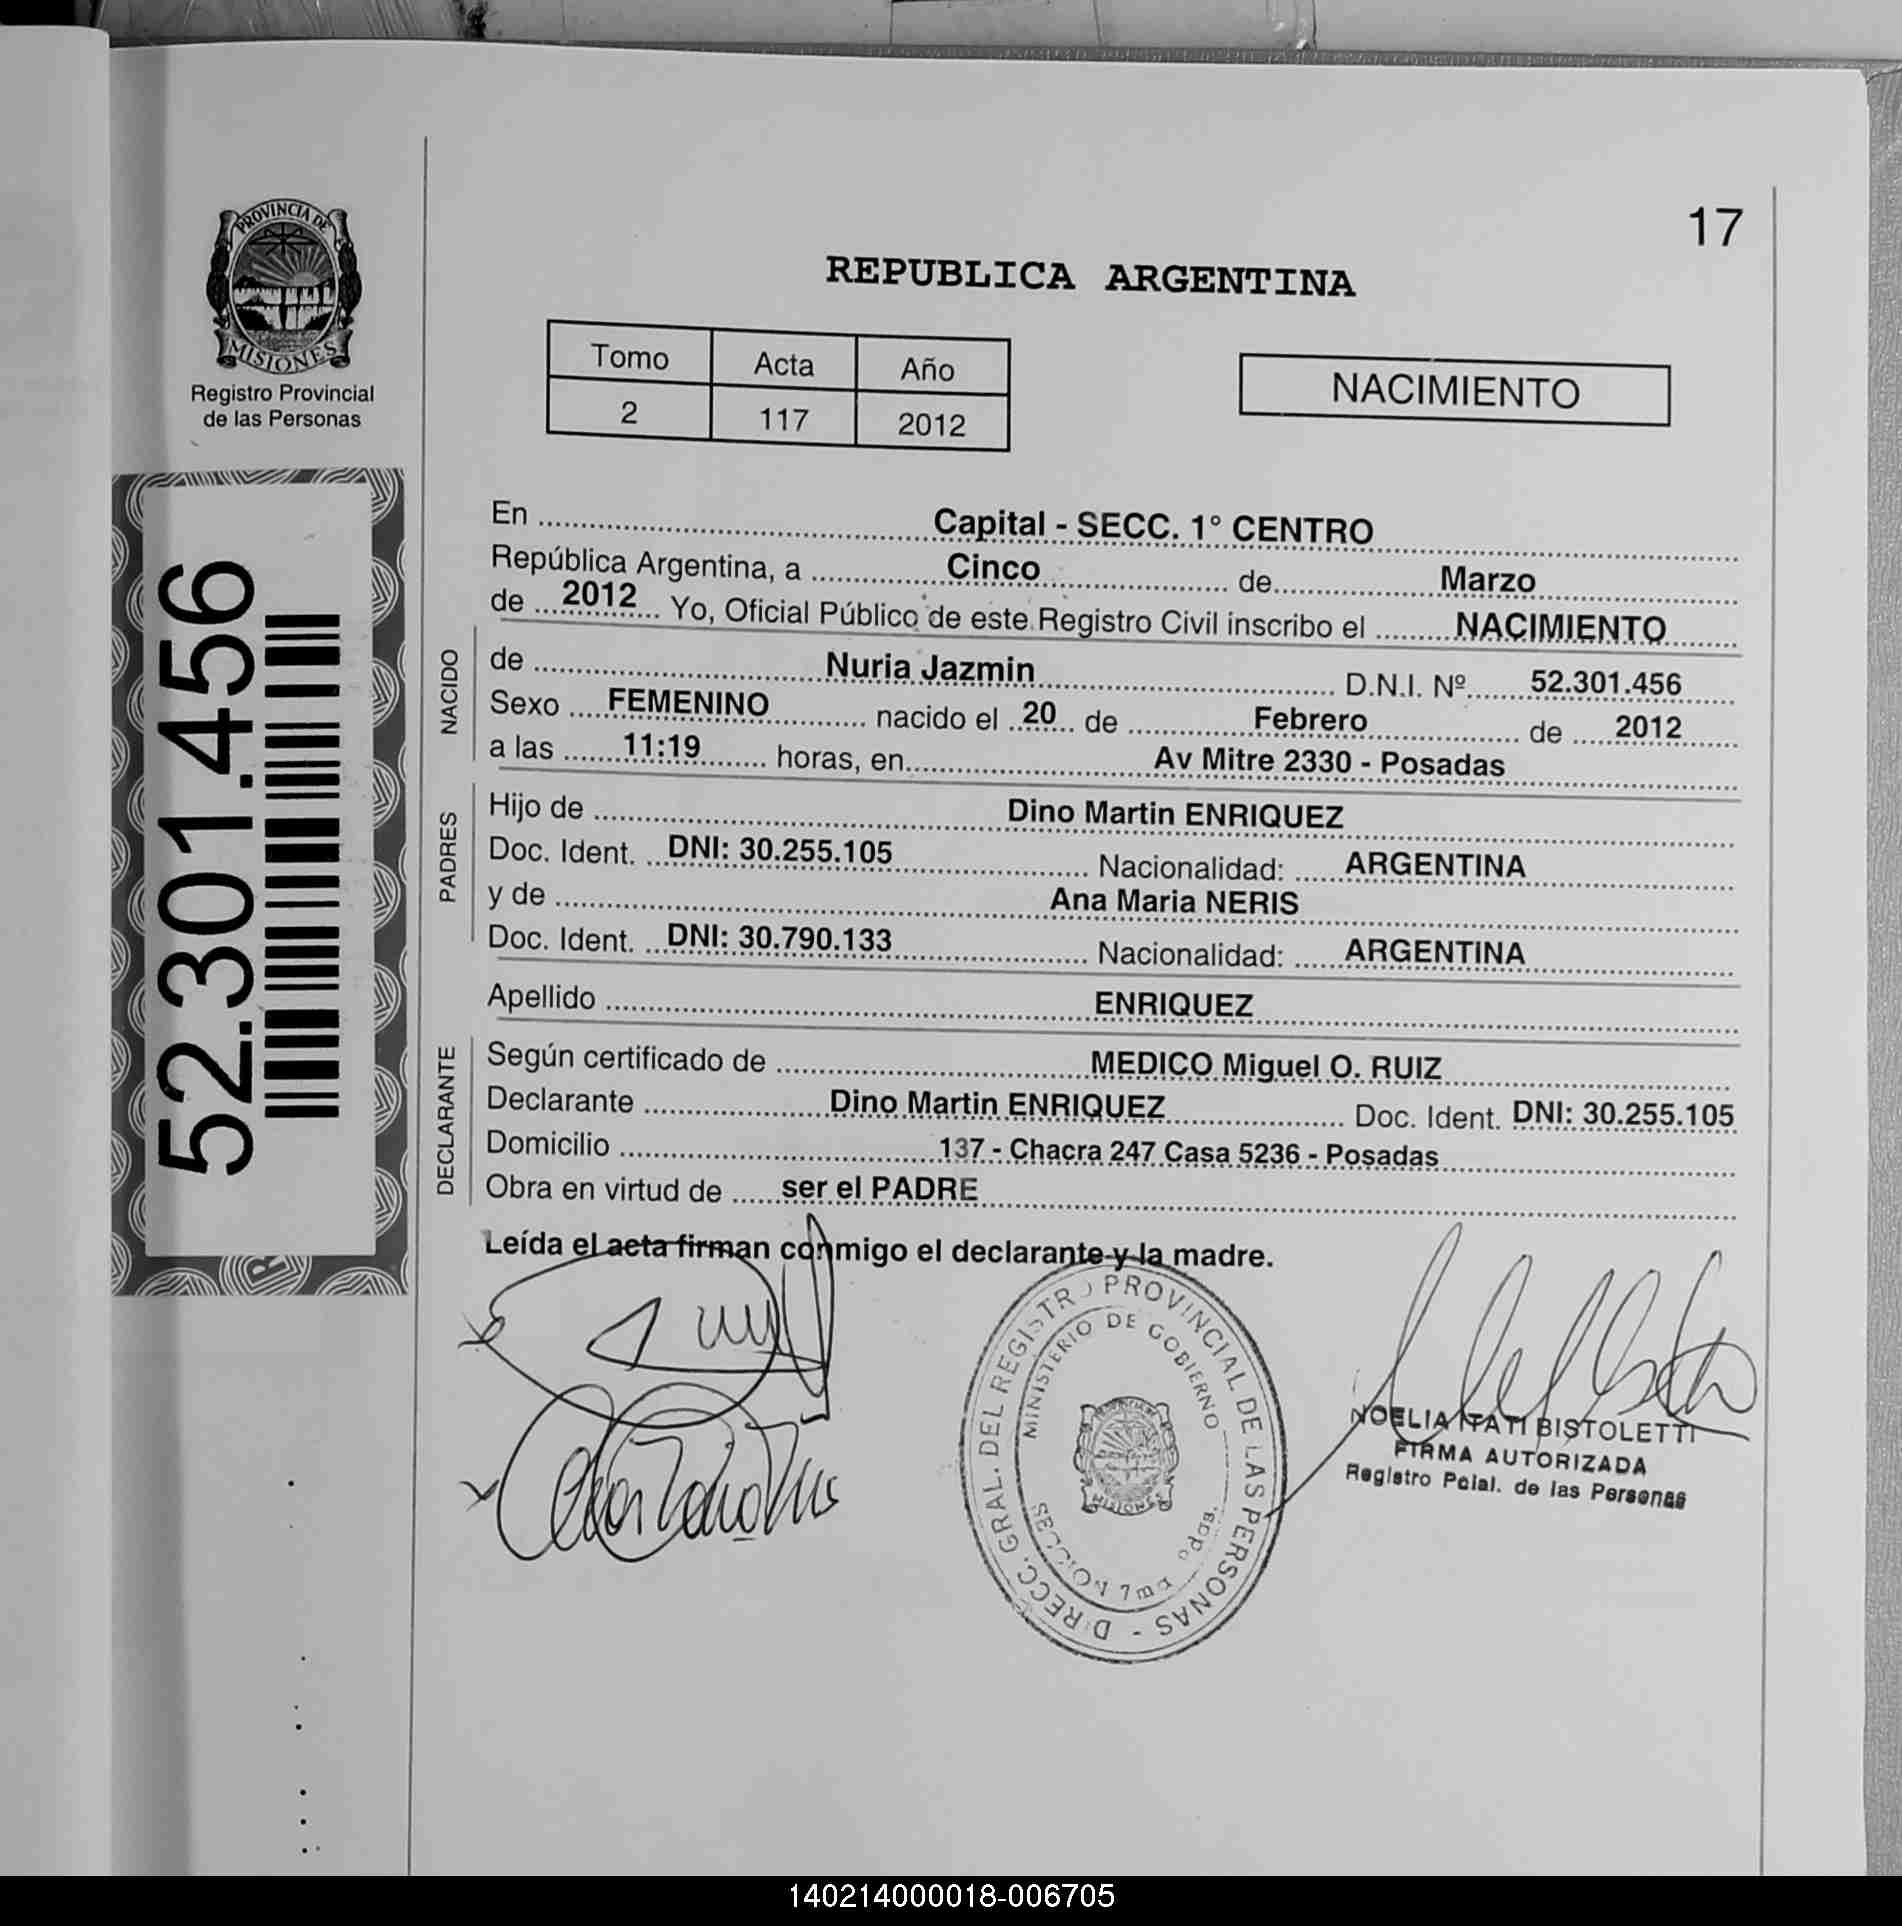 17
PROVINCIA DE
MISIONES
Registro Provincial
de las Personas
REPUBLICA ARGENTINA
Tomo Acta Año
2 117 2012
NACIMIENTO
52.301.456
En Capital - SECC. 1° CENTRO
República Argentina, a Cinco de Marzo
de 2012 Yo, Oficial Público de este Registro Civil inscribo el NACIMIENTO
NACIDO
de Nuria Jazmin D.N.I. Nº 52.301.456
Sexo FEMENINO nacido el 20 de Febrero de 2012
a las 11:19 horas, en Av Mitre 2330 - Posadas
PADRES
Hijo de Dino Martin ENRIQUEZ
Doc. Ident. DNI: 30.255.105 Nacionalidad: ARGENTINA
y de Ana Maria NERIS
Doc. Ident. DNI: 30.790.133 Nacionalidad: ARGENTINA
Apellido ENRIQUEZ
DECLARANTE
Según certificado de MEDICO Miguel O. RUIZ
Declarante Dino Martin ENRIQUEZ Doc. Ident. DNI: 30.255.105
Domicilio 137 - Chacra 247 Casa 5236 - Posadas
Obra en virtud de ser el PADRE
Leída el acta firman conmigo el declarante y la madre.
DIRECC. GRAL. DEL REGISTRO PROVINCIAL DE LAS PERSONAS -
MINISTERIO DE GOBIERNO
MISIONES
SECCION 7ma Pdas.
NOELIA ITATI BISTOLETTI
FIRMA AUTORIZADA
Registro Pcial. de las Personas
140214000018-006705